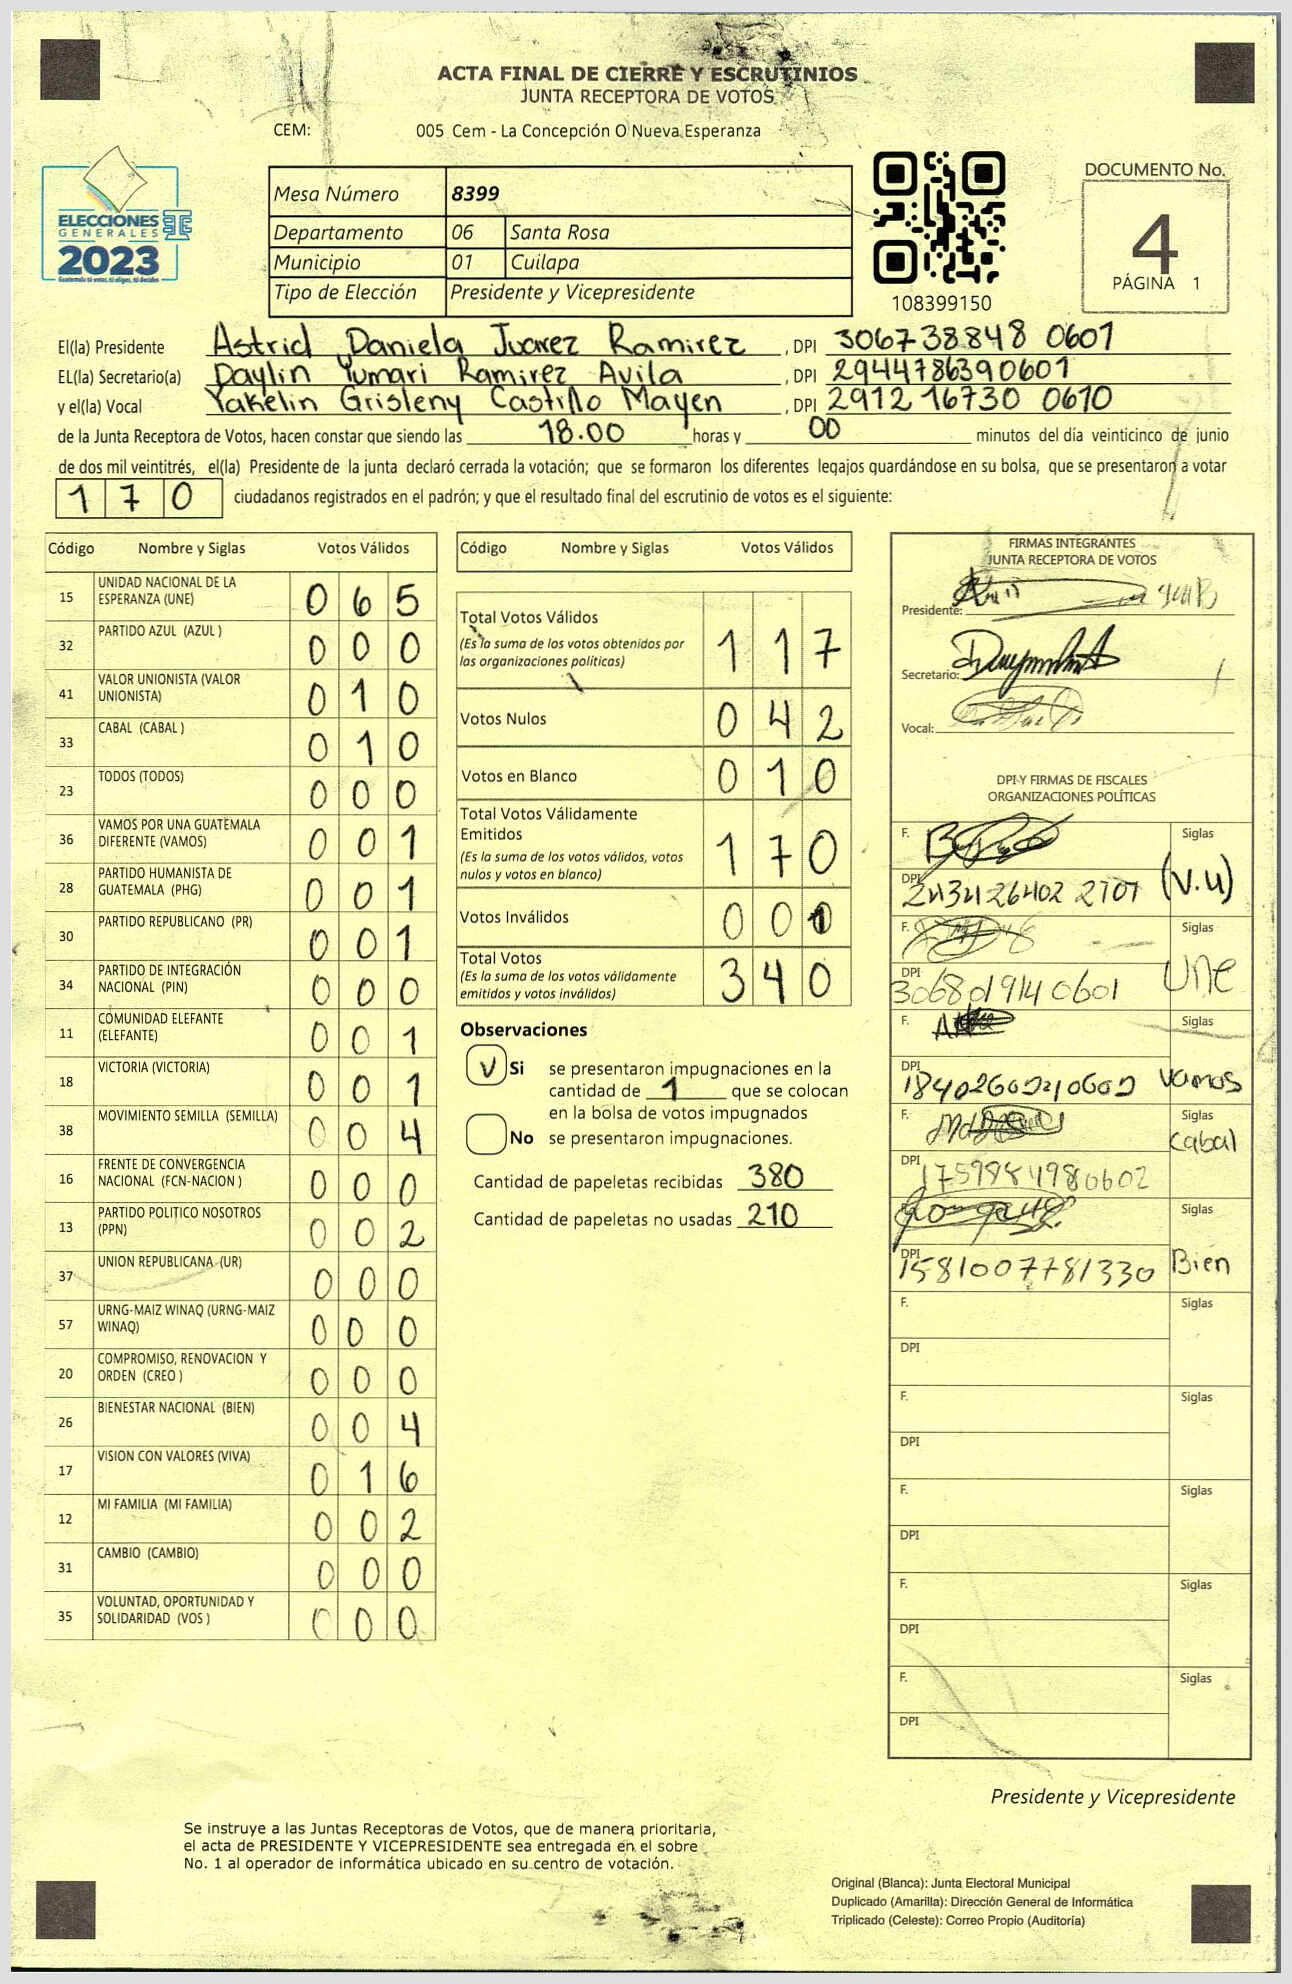 ACTA FINAL DE CIERRE Y ESCRUTINIOS
JUNTA RECEPTORA DE VOTOS
CEM: 005 Cem - La Concepción O Nueva Esperanza
ELECCIONES
GENERALES
2023
Mesa Número 8399
Departamento 06 Santa Rosa
Municipio 01 Cuilapa
Tipo de Elección Presidente y Vicepresidente
108399150
DOCUMENTO No.
4
PÁGINA 1
El(la) Presidente Astrid Daniela Juarez Ramirez , DPI 306738848 0601
EL(la) Secretario(a) Daylin Yumari Ramirez Avila , DPI 2944786390601
y el(la) Vocal Yakelin Grisleny Castillo Mayen , DPI 2912 16730 0610
de la Junta Receptora de Votos, hacen constar que siendo las 18.00 horas y 00 minutos del día veinticinco de junio
de dos mil veintitrés, el(la) Presidente de la junta declaró cerrada la votación; que se formaron los diferentes legajos guardándose en su bolsa, que se presentaron a votar
170 ciudadanos registrados en el padrón; y que el resultado final del escrutinio de votos es el siguiente:
Código Nombre y Siglas Votos Válidos
15 UNIDAD NACIONAL DE LA ESPERANZA (UNE) 065
32 PARTIDO AZUL (AZUL ) 000
41 VALOR UNIONISTA (VALOR UNIONISTA) 010
33 CABAL (CABAL ) 010
23 TODOS (TODOS) 000
36 VAMOS POR UNA GUATEMALA DIFERENTE (VAMOS) 001
28 PARTIDO HUMANISTA DE GUATEMALA (PHG) 001
30 PARTIDO REPUBLICANO (PR) 001
34 PARTIDO DE INTEGRACIÓN NACIONAL (PIN) 000
11 COMUNIDAD ELEFANTE (ELEFANTE) 001
18 VICTORIA (VICTORIA) 001
38 MOVIMIENTO SEMILLA (SEMILLA) 004
16 FRENTE DE CONVERGENCIA NACIONAL (FCN-NACION ) 000
13 PARTIDO POLITICO NOSOTROS (PPN) 002
37 UNION REPUBLICANA (UR) 000
57 URNG-MAIZ WINAQ (URNG-MAIZ WINAQ) 000
20 COMPROMISO, RENOVACION Y ORDEN (CREO ) 000
26 BIENESTAR NACIONAL (BIEN) 004
17 VISION CON VALORES (VIVA) 016
12 MI FAMILIA (MI FAMILIA) 002
31 CAMBIO (CAMBIO) 000
35 VOLUNTAD, OPORTUNIDAD Y SOLIDARIDAD (VOS ) 000
Código Nombre y Siglas Votos Válidos
Total Votos Válidos 117
(Es la suma de los votos obtenidos por
las organizaciones políticas)
Votos Nulos 042
Votos en Blanco 010
Total Votos Válidamente
Emitidos 170
(Es la suma de los votos válidos, votos
nulos y votos en blanco)
Votos Inválidos 00
Total Votos 340
(Es la suma de los votos válidamente
emitidos y votos inválidos)
Observaciones
V Si se presentaron impugnaciones en la
cantidad de 1 que se colocan
en la bolsa de votos impugnados
No se presentaron impugnaciones.
Cantidad de papeletas recibidas 380
Cantidad de papeletas no usadas 210
FIRMAS INTEGRANTES
JUNTA RECEPTORA DE VOTOS
Presidente:
Secretario:
Vocal:
DPI Y FIRMAS DE FISCALES
ORGANIZACIONES POLÍTICAS
F. Siglas
DPI (V.U)
F. Siglas
DPI 3068019140601 Une
F. Siglas
DPI Vamos
F. Siglas
DPI 1759884980602 Cabal
F. Siglas
DPI 1581007781330 Bien
F. Siglas
DPI
F. Siglas
DPI
F. Siglas
DPI
F. Siglas
DPI
F. Siglas
DPI
Presidente y Vicepresidente
Se instruye a las Juntas Receptoras de Votos, que de manera prioritaria,
el acta de PRESIDENTE Y VICEPRESIDENTE sea entregada en el sobre
No. 1 al operador de informática ubicado en su centro de votación.
Original (Blanca): Junta Electoral Municipal
Duplicado (Amarilla): Dirección General de Informática
Triplicado (Celeste): Correo Propio (Auditoría)